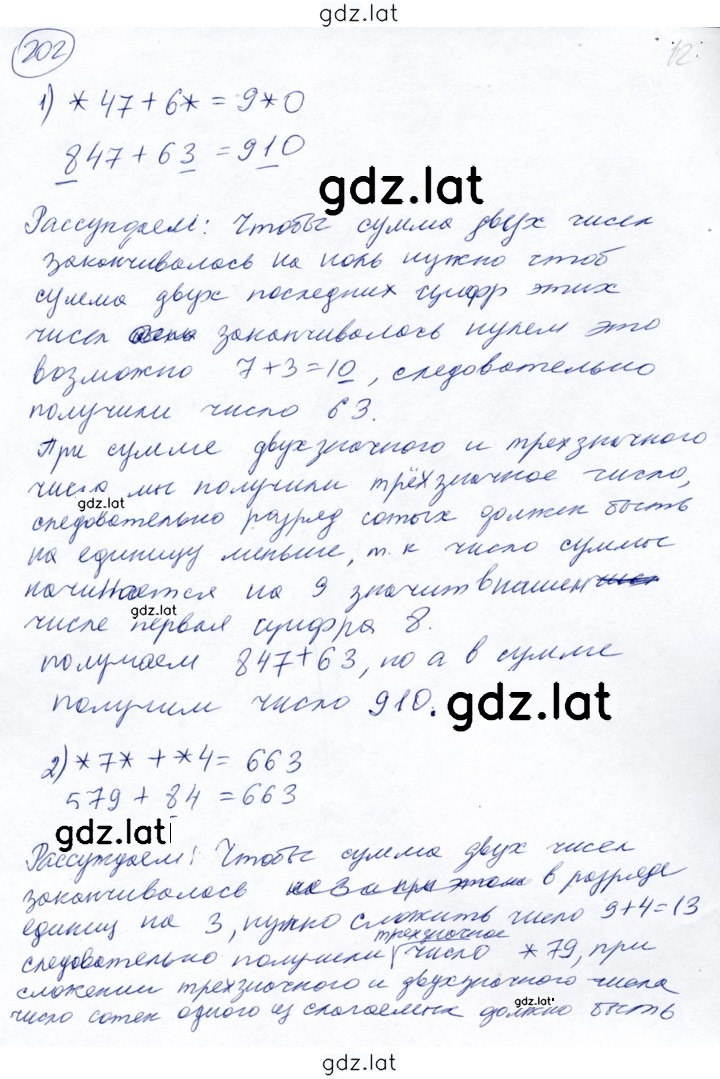 gdz.lat
202
12.
1) *47+6*=9*0
847+63=910
gdz.lat
Рассуждаем: Чтобы сумма двух чисел
заканчивалось на ноль нужно чтоб
сумма двух последних цифр этих
чисел заканчивалось нулем это
возможно 7+3=10, следовательно
получили число 63.
При сумме двухзначного и трехзначного
числа мы получили трёхзначное число,
gdz.lat
следовательно разряд сотых должен быть
на единицу меньше, т.к число суммы
начинается на 9 значит в нашем
gdz.lat
числе первая цифра 8.
получаем 847+63, но а в сумме
получим число 910.
gdz.lat
2) *7* + *4= 663
579 + 84 = 663
gdz.lat
Рассуждаем: Чтобы сумма двух чисел
заканчивалось в разряде
единиц на 3, нужно сложить число 9+4=13
следовательно получили трехзначное число *79, при
сложении трехзначного и двухзначного числа
gdz.lat
число сотен одного из слагаемых должно быть
gdz.lat